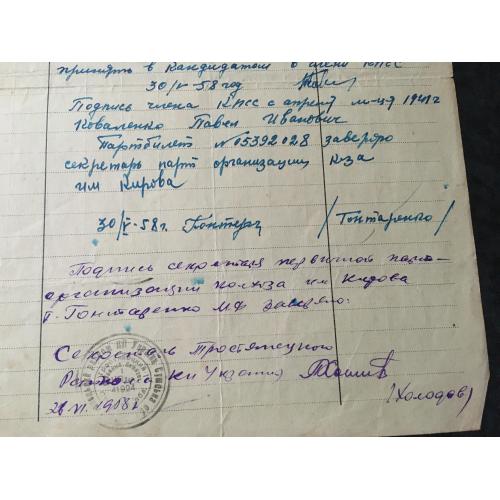 принять в кандидатом в члени КПСС
30/V-58 год
Подпись члена КПСС с апреля м-ца 1941 г
Коваленко Павел Иванович
Партбилет № 05392028 заверяю
секретарь парт организации к-за
им Кирова
30/V-58 г. /Гонтаренко/
Подпись секретаря первичной парт-
организации колхоза им Кирова
т. Гонтаренко МФ заверяю:
Секретарь Тростянецкого
Райкома КП Украины
(Холодов)